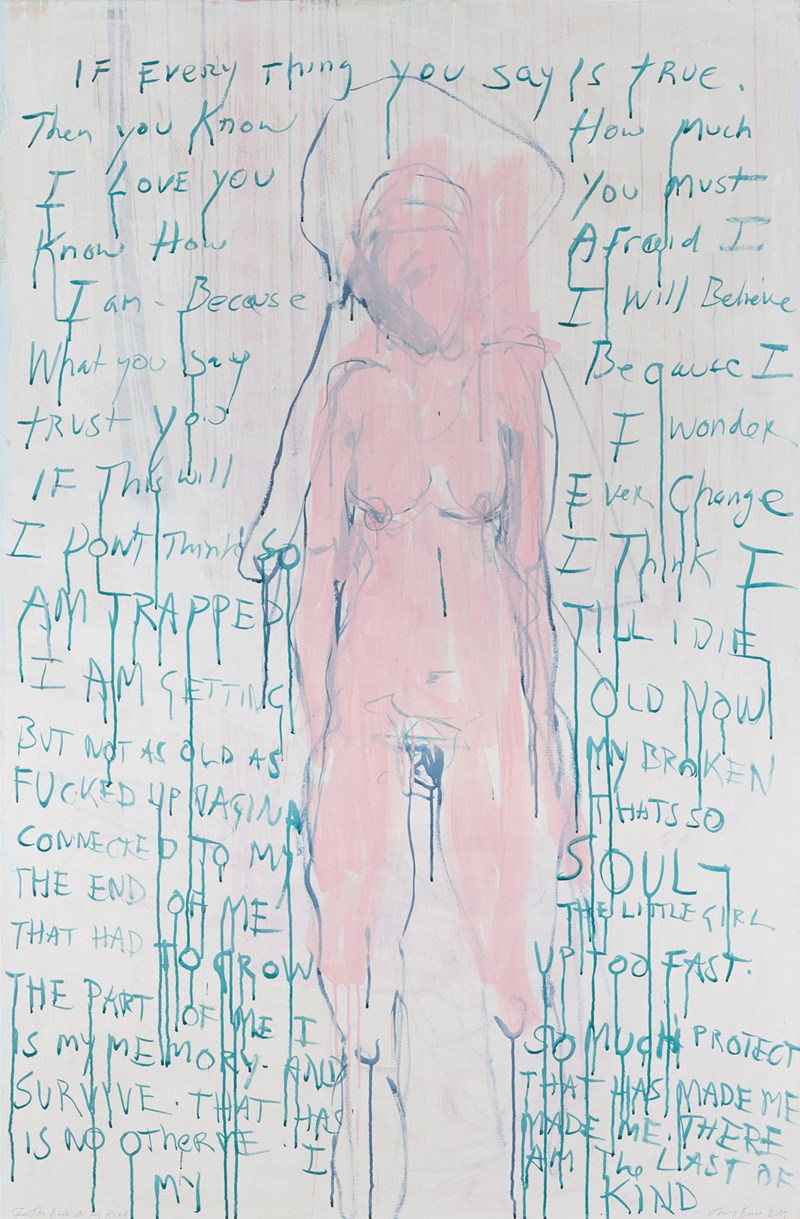 IF EVERY Thing you say Is TRUE.
Then you Know How Much
I LOVE YOU You Must
Know How Afraid I
I am - Because I Will Believe
What you Say Because I
TRUST YOU I wonder
IF This will Ever Change
I DONT Think So I Think I
AM TRAPPED TILL I DIE
I AM GETTING OLD NOW
BUT NOT AS OLD AS MY BROKEN
FUCKED UP VAGINA THATS SO
CONNECTED TO MY SOUL -
THE END OF ME THE LITTLE GIRL
THAT HAD TO GROW UP TOO FAST.
THE PART OF ME I SO MUCH PROTECT
IS MY MEMORY. AND THAT HAS MADE ME
SURVIVE. THAT HAS MADE ME. THERE
IS NO OTHER ME. I AM The LAST OF
MY KIND